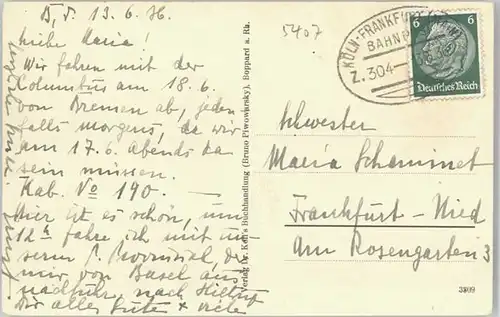 B, d. 13.6.36.
Liebe Maria!
Wir fahren mit der
Columbus am 18.6.
von Bremen ab, jeden
falls morgens, da wir
am 17.6. abends da
sein müssen.
Kab. No 190.—
Hier ist es schön, um
12 h fahre ich mit un-
serm P. Provinzial, der
mir von Basel aus
nachfuhr, nach Hiltrup
Dir alles Gute + viele
Verlag Dr. Keil's Buchhandlung (Bruno Piwowarsky), Boppard a. Rh.
5407
KÖLN-FRANKFURT
BAHNP
Z.304
6 6
Deutsches Reich
Schwester
Maria Schaminet
Frankfurt-Nied
Am Rosengarten 3